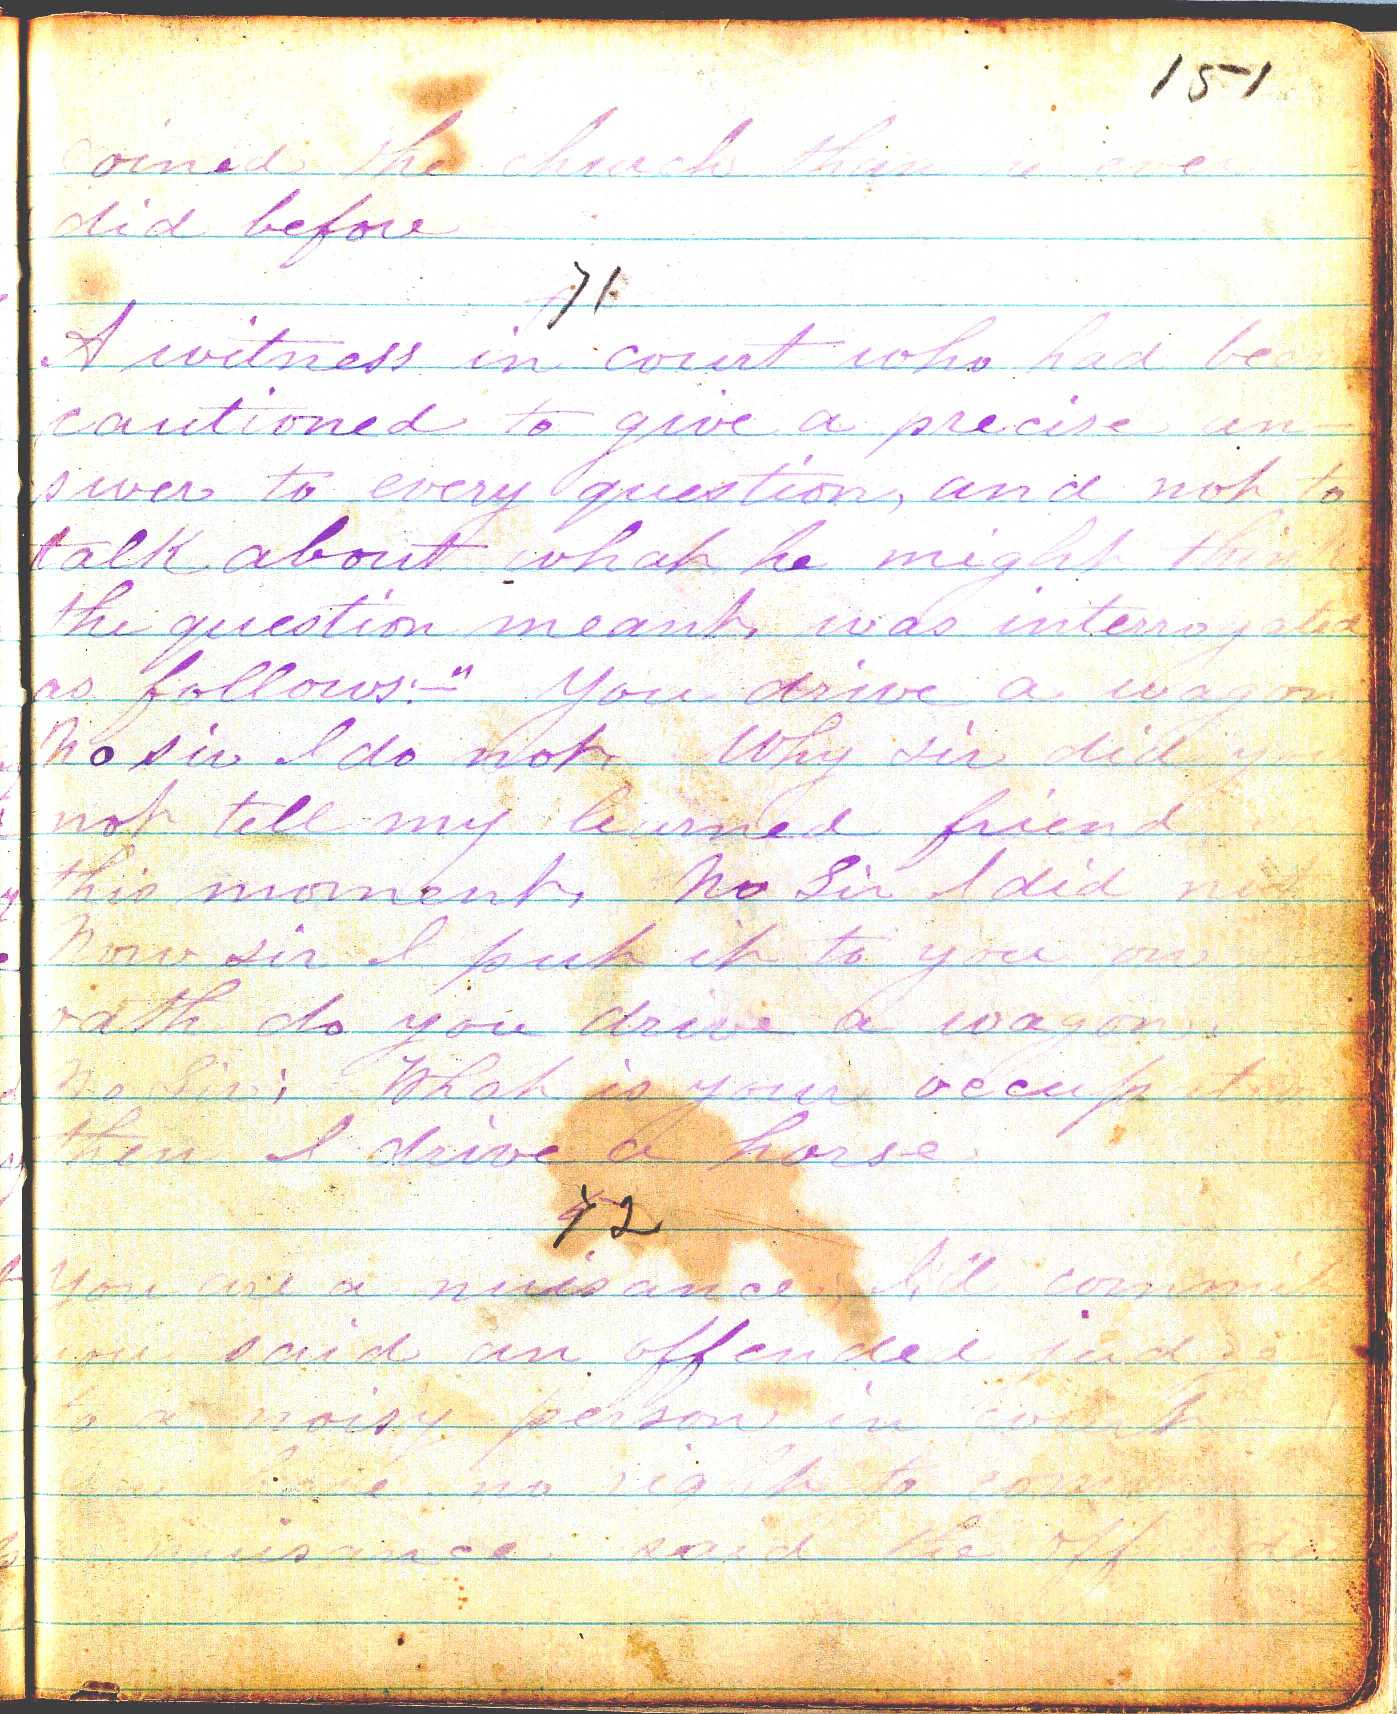 151
joined the church than it ever
did before
71
A witness in court who had been
cautioned to give a precise an-
swer to every question, and not to
talk about what he might think
the question meant, was interrogated
as follows:—" You drive a wagon
No sir I do not. Why sir did you
not tell my learned friend
this moment. No Sir I did not
Now sir I put it to you on
oath do you drive a wagon.
No Sir; What is your occupation
then I drive a horse.
72
You are a nuisance. I'll commit
you said an offended judge
to a noisy person in court
You have no right to commit
a nuisance said the offender